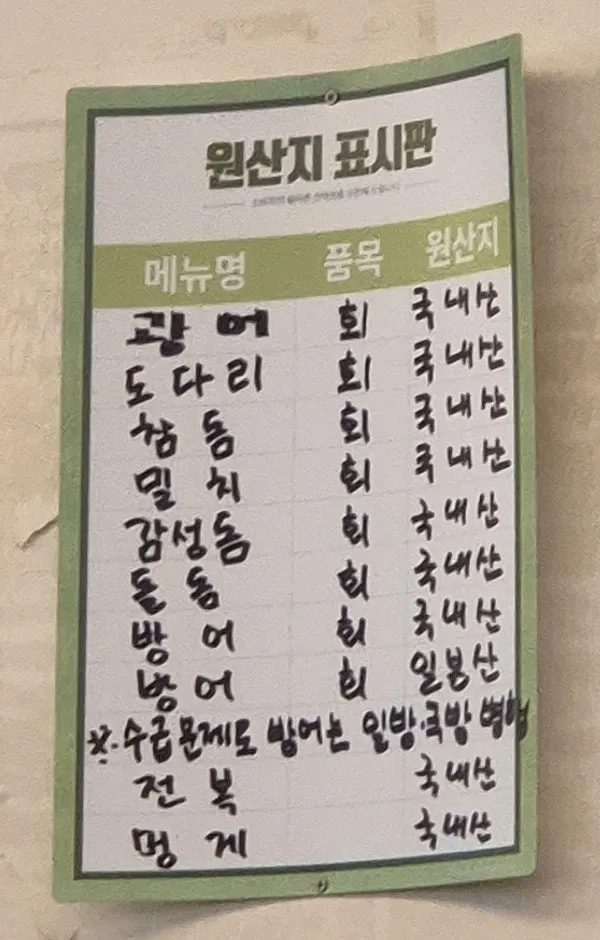 원산지 표시판
메뉴명 품목 원산지
광어 회 국내산
도다리 회 국내산
참돔 회 국내산
밀치 회 국내산
감성돔 회 국내산
돌돔 회 국내산
방어 회 국내산
방어 회 일봉산
※.수급문제도 방어는 일방.국방 병행
전복 국내산
멍게 국내산